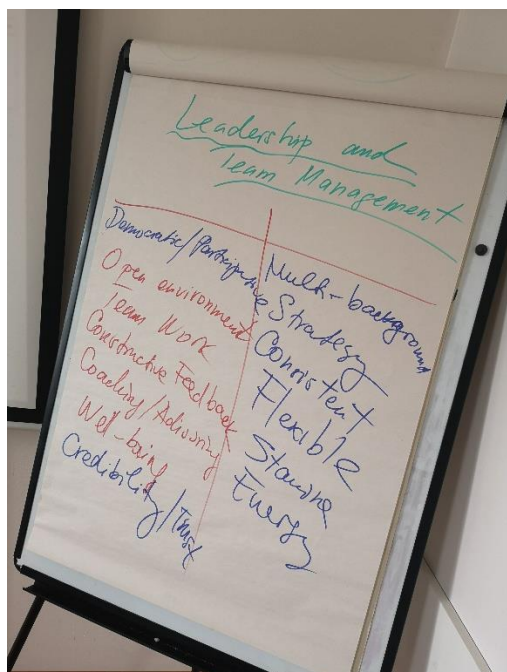 Leadership and
Team Management
Democratic/Participative
Open environment
Team Work
Constructive Feedback
Coaching/Advising
Well-being
Credibility/Trust
Multi-background
Strategy
Consistent
Flexible
Stamina
Energy